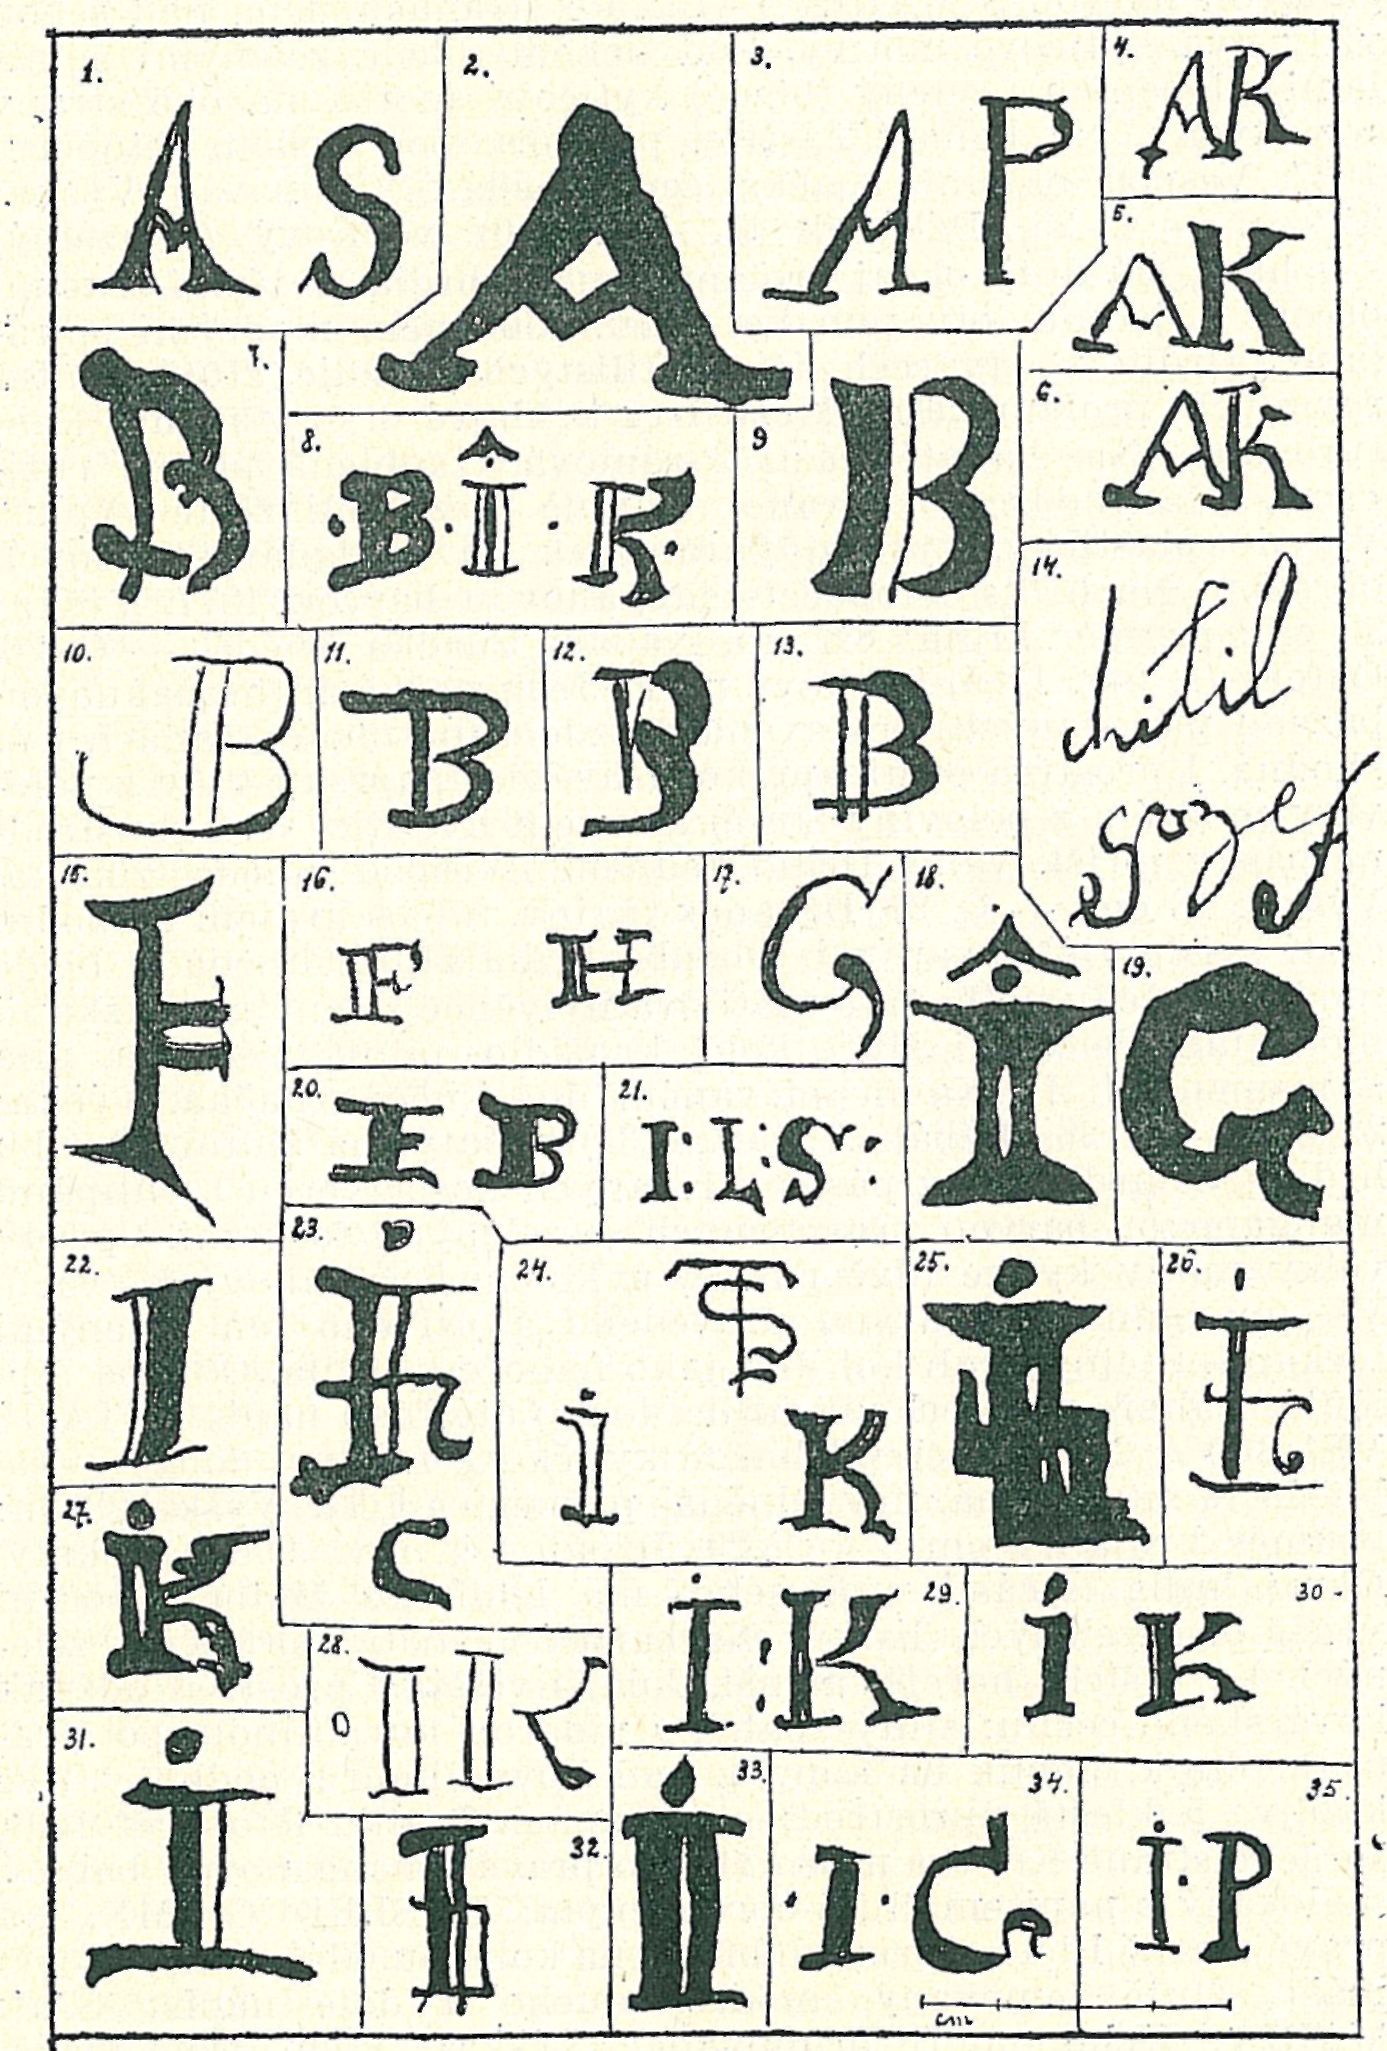 1. A S
2. A
3. A P
4. AK
5. AK
6. AK
7. B
8. ·B·Î·K·
9 B
10. B
11. B
12. B
13. B
14. hitil
Gozef
15. F
16. F H
17. G
18. Î
19. G
20. E B
21. I:L:S:
22. I
23.
C
24. TS
i K
25.
26.
27. iK
28. O I I K
29. İ:K
30- i K
31. İ
32.
33. İ
34. ·I·G
35. İ·P
cm